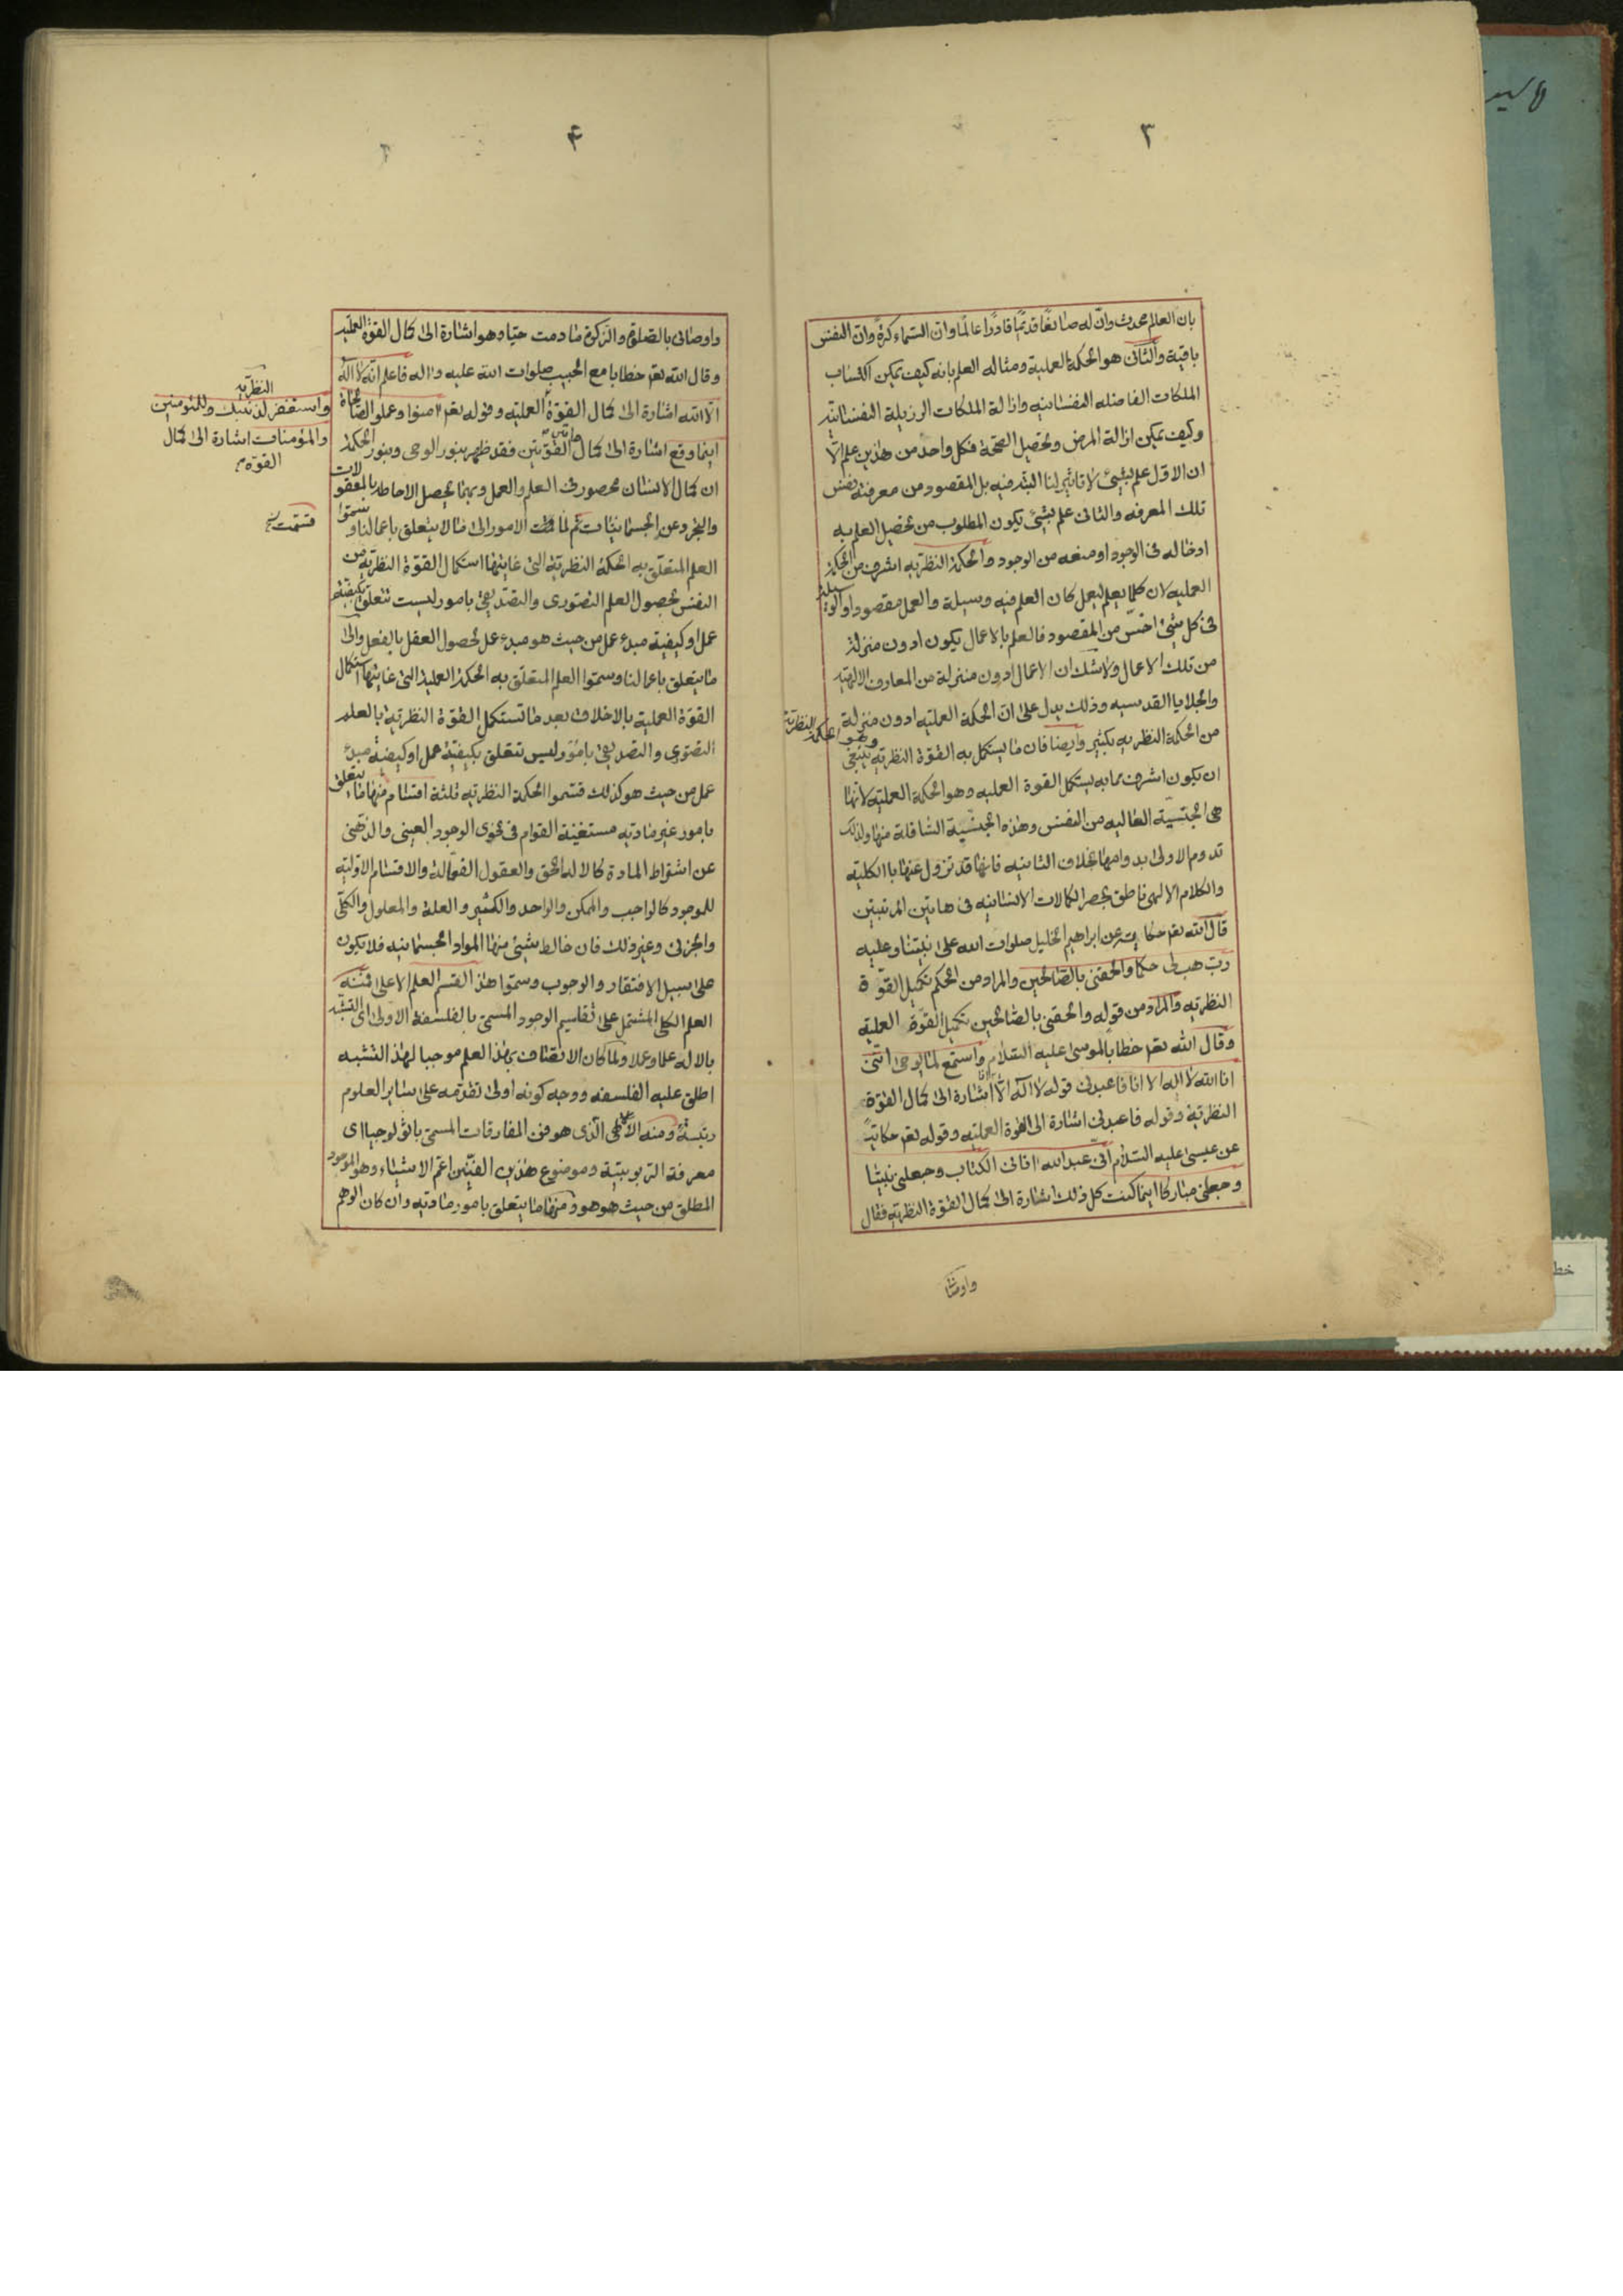 ٣
بان العالم محدث وان له صانعًا قديمًا قادرًا عالمًا وان السماء كرة وان النفس
باقية والثانى هو الحكمة العملية ومثاله العلم بانه كيف يمكن اكتساب
الملكات الفاضله النفسانيه وازالة الملكات الرزيلة النفسانيّه
وكيف يمكن ازالة المرض وتحصيل الصحّة فكل واحد من هذين علم الّا
ان الاول علم بشيئ لا تاثير لنا البتّه فيه بل المقصود من معرفته نفس
تلك المعرفه والثانى علم بشئ يكون المطلوب من تحصيل العلم به
ادخاله فى الوجود او منعه من الوجود والحكمة النظريه اشرف من الحكمة
العمليه لان كلما يعلم ليعمل كان العلم فيه وسيلة والعمل مقصودا والوسيلة
فى كل شيئ اخسّ من المقصود فالعلم بالاعمال يكون ادون منزلة
من تلك الاعمال ولا شك ان الاعمال ادون منزلة من المعارف الالهيّه
والجلايا القدسيه وذلك يدل على ان الحكمة العمليه ادون منزلة
من الحكمة النظريه بكثير وايضا فان ما يستكمل به القوّة النظريه وهو الحكمة النظرية ينبغى
ان يكون اشرف مما به يستكمل القوة العمليه وهو الحكمة العمليّه لانّها
هى الجنسيّة العاليه من النفس وهذه الجنسيّة السّافلة منها ولذلك
تدوم الاولى بدوامها بخلاف الثانيه فانها قد تزول عنها باالكليّه
والكلام الالهى ناطق بحصر الكمالات الانسانيه فى هاتين المرتبتين
قال الله تعم حكاية عن ابراهيم الخليل صلوات الله على نبيّنا وعليه
ربّ هب لى حكما والحقنى بالصّالحين والمراد من الحكم تكميل القوّة
النظريّه والمراد من قوله والحقنى بالصّالحين تكميل القوّة العمليّة
وقال الله تعم خطابا لموسى عليه السّلام واستمع لما يوحى انّنى
انا الله لا اله الا انا فاعبدنى قوله لا آله الّا انا اشارة الى كمال القوّة
النظريّة وقوله فاعبدنى اشارة الى القوة العمليّه وقوله تعم حكايةً
عن عيسى عليه السّلام انّى عبد الله اتانى الكتاب وجعلنى نبيّا
وجعلنى مباركا اينما كنت كل ذلك اشارة الى كمال القوّة النظريّه فقال
واوصا
۴
واوصانى بالصّلوة والزكوة ما دمت حيّا وهو اشارة الى كمال القوّة العمليّه
وقال الله تعم خطابا مع الحبيب صلوات الله عليه واله فاعلم انّه لا آله
الّا الله اشارة الى كمال القوّة العمليّه وقوله تعم امنوا وعملوا الصّالحات
النظريّه
واستغفر لذنبك وللمؤمنين
والمؤمنات اشارة الى كمال
القوّه
اينما وقع اشارة الى كمال هاتين القوّتين فقد ظهر بنور الوحى وبنور الحكمة
ان كمال الانسان محصور فى العلم والعمل وبهما يحصل الاحاطة بالمعقولات
والتجرد عن الجسمانيّات ثم لمّا الامور الى ما لا يتعلق باعمالنا وسمّوا
العلم المتعلّق به الحكمة النظريّة التى غايتها استكمال القوّة النظريّه من
النفس بحصول العلم التصوّرى والتصديقى بامور ليست تتعلق بكيفيّة
عمل او كيفية مبدء عمل من حيث هو مبدء عمل لحصول العقل بالفعل والى
ما يتعلق باعمالنا وسمّوا العلم المتعلّق به الحكمة العملية التى غايتها استكمال
القوّة العملية بالاخلاق بعد ما تستكمل القوّة النظريّة بالعلم
التصوّرى والتصديقى بامور ليس تتعلق بكيفيّة عمل او كيفية مبدء
عمل من حيث هو كذلك قسّموا الحكمة النظريّه ثلثة اقسام منها ما يتعلق
بامور غير مادّيه مستغنية القوام فى نحوى الوجود العينى والذّهنى
عن اشتراط المادة كالاله الحق والعقول الفعّالة والاقسام الاوّليّه
للموجود كالواجب والممكن والواحد والكثير والعلة والمعلول والكلّى
والجزئى وغير ذلك فان خالط شيئ منها المواد الجسمانيه فلا يكون
على سبيل الافتقار والوجوب وسمّوا هذا القسم العلم الاعلى فمنه
العلم الكلى المشتمل على تقاسيم الوجود المسمّى بالفلسفة الاولى اى التشبّه
بالاله علما وعملا ولما كان الاتصاف بهذا العلم موجبا لهذا التشبه
اطلق عليه الفلسفه ووجه كونه اولى تقدّمه على ساير العلوم
رتبةً ومنه الالهى الّذى هو فن المفارقات المسمّى باثولوجيا اى
معرفة الرّبوبيّة وموضوع هذين الفنّين اعمّ الاشياء وهو الموجود
المطلق من حيث هو هو ومنها ما يتعلق بامور مادّيه وان كان الوهم